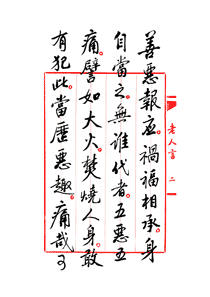 善惡報應。禍福相承。身
自當之。無誰代者。五惡五
痛。譬如大火。焚燒人身。敢
有犯此。當歷惡趣。痛哉可
老人言 二